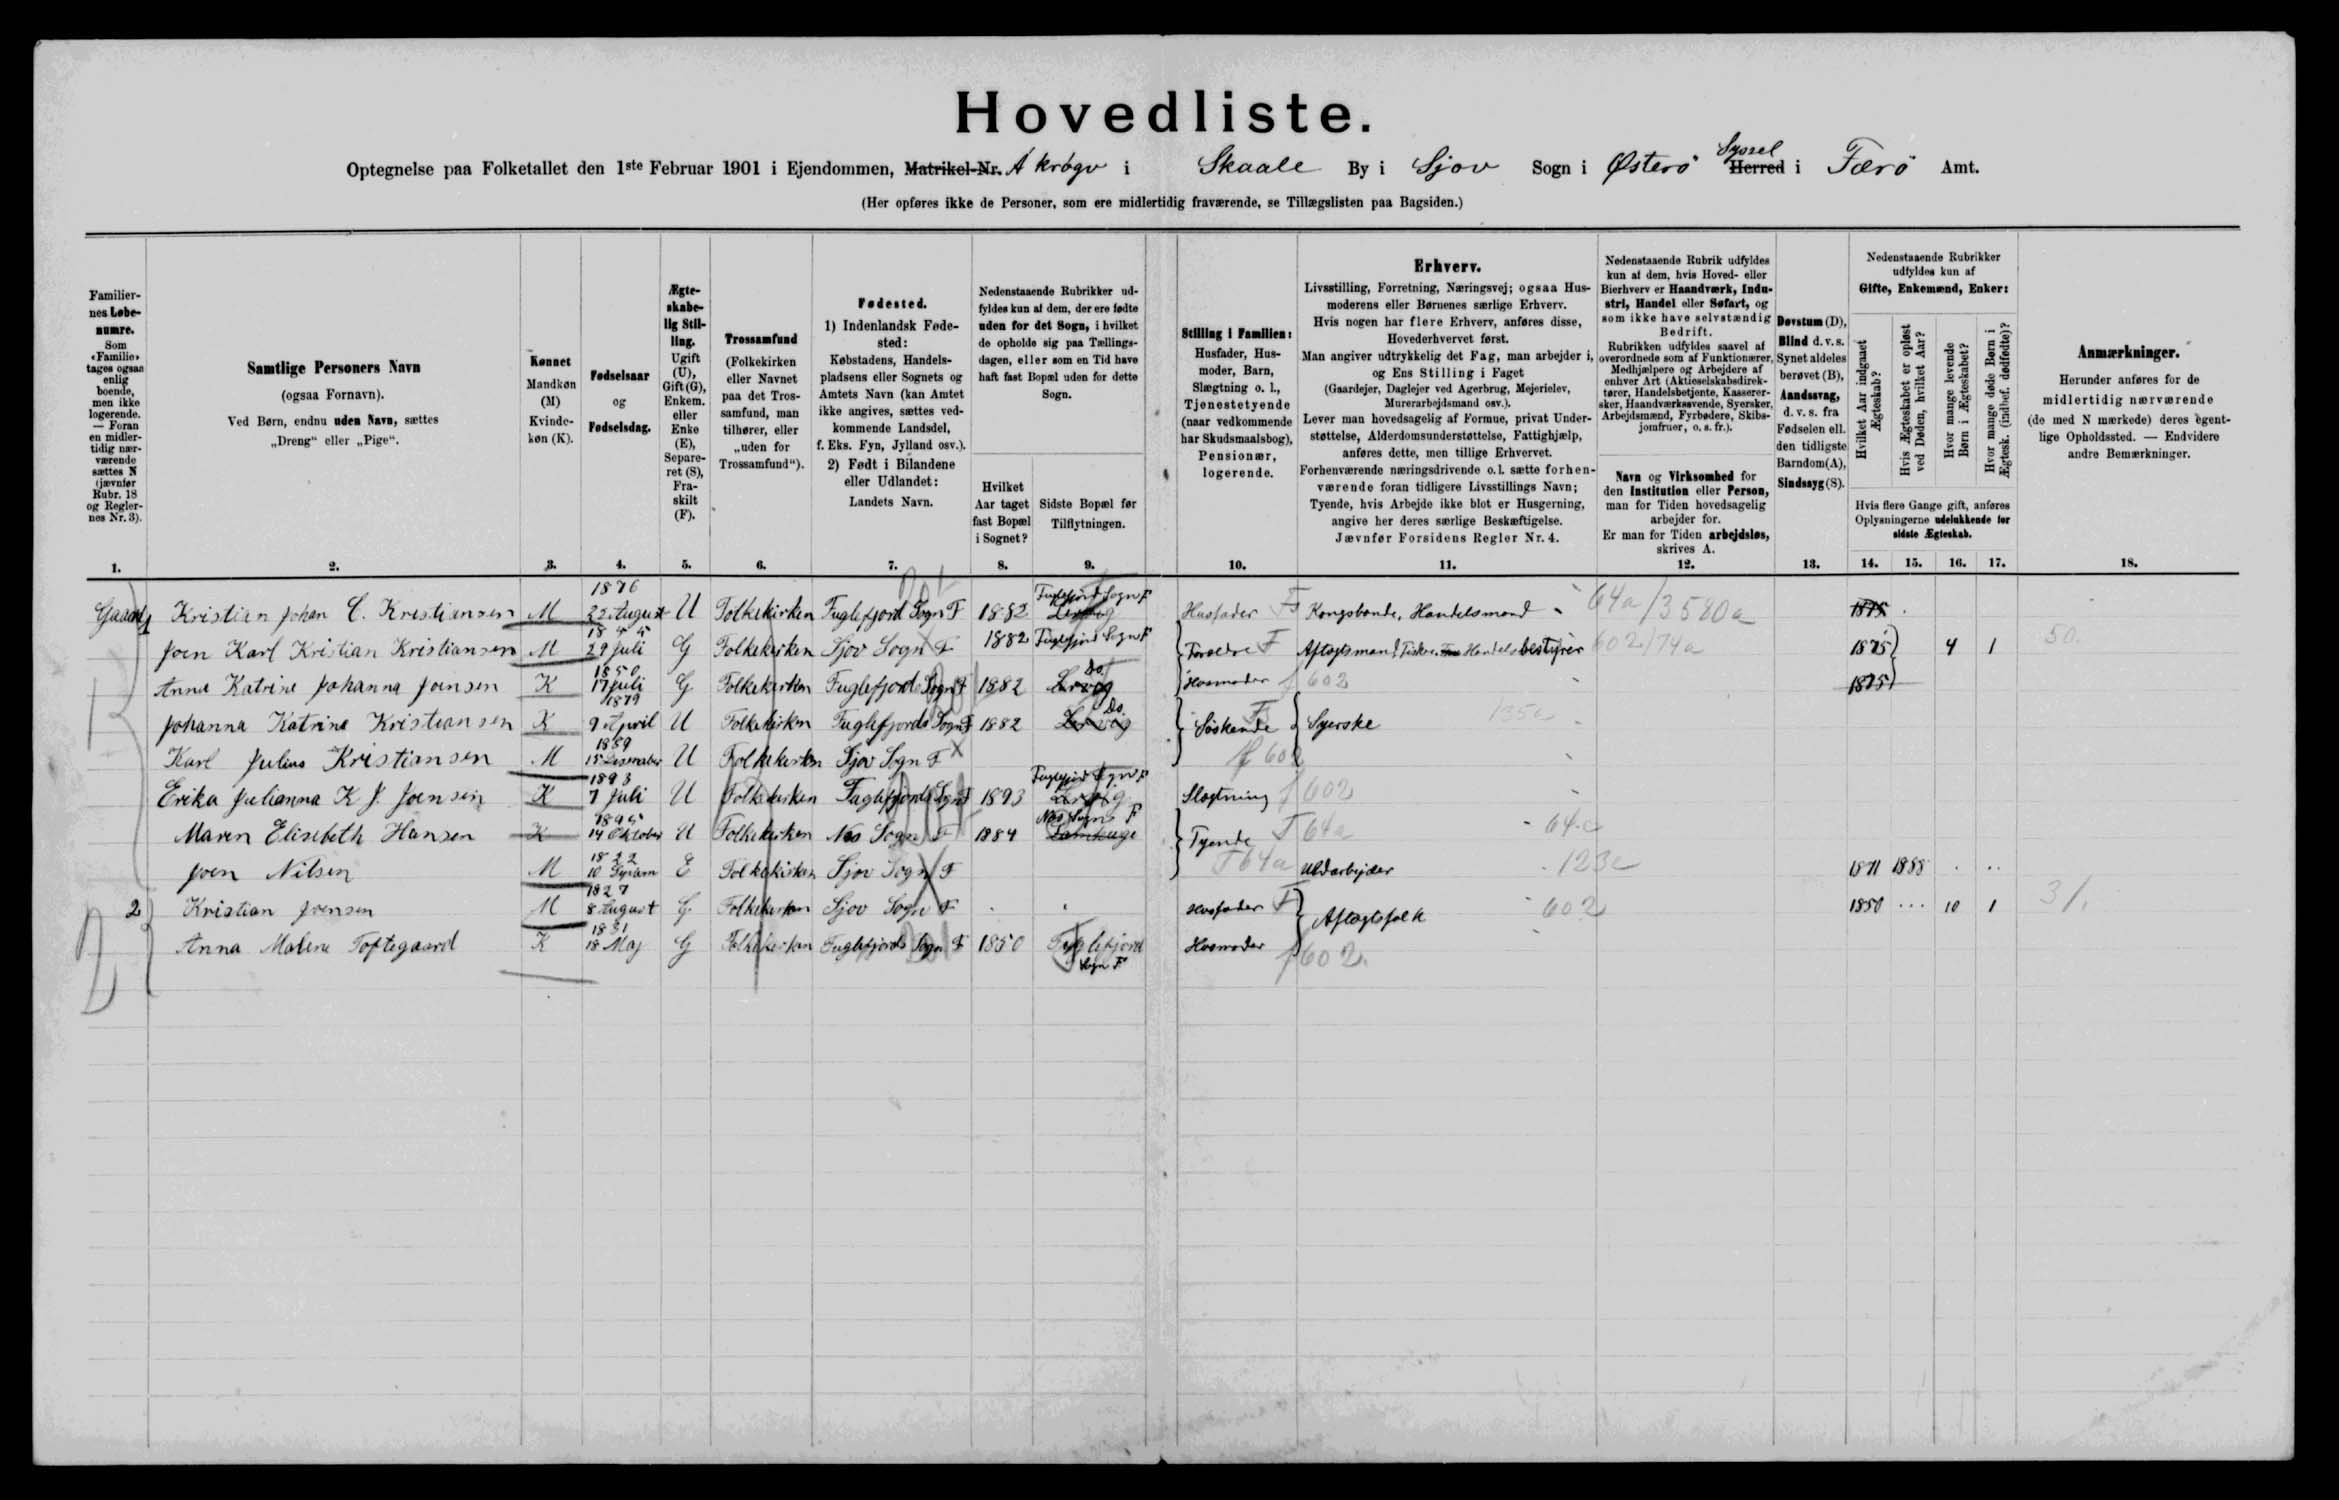 Hovedliste.
Optegnelse paa Folketallet den 1ste Februar 1901 i Ejendommen, Matrikel-Nr. Á krógv i Skaale By i Sjov Sogn i Østerö Herred Syssel i Færö Amt.
(Her opføres ikke de Personer, som ere midlertidig fraværende, se Tillægslisten paa Bagsiden.)
Familiernes Løbenumre.
Som «Familie» tages ogsaa enlig boende, men ikke logerende. — Foran en midlertidig nærværende sættes N (jævnfør Rubr. 18 og Reglernes Nr. 3).
Samtlige Personers Navn
(ogsaa Fornavn).
Ved Børn, endnu uden Navn, sættes
„Dreng“ eller „Pige“.
Kønnet
Mandkøn (M)
Kvindekøn (K).
Fødselsaar
og
Fødselsdag.
Ægteskabelig Stilling.
Ugift (U), Gift (G), Enkem. eller Enke (E), Separeret (S), Fraskilt (F).
Trossamfund
(Folkekirken eller Navnet paa det Trossamfund, man tilhører, eller „uden for Trossamfund“).
Fødested.
1) Indenlandsk Fødested:
Købstadens, Handelspladsens eller Sognets og Amtets Navn (kan Amtet ikke angives, sættes vedkommende Landsdel, f. Eks. Fyn, Jylland osv.).
2) Født i Bilandene eller Udlandet:
Landets Navn.
Nedenstaaende Rubrikker udfyldes kun af dem, der ere fødte uden for det Sogn, i hvilket de opholde sig paa Tællingsdagen, eller som en Tid have haft fast Bopæl uden for dette Sogn.
Hvilket Aar taget fast Bopæl i Sognet?
Sidste Bopæl før Tilflytningen.
Stilling i Familien:
Husfader, Husmoder, Barn, Slægtning o. l., Tjenestetyende (naar vedkommende har Skudsmaalsbog), Pensionær, logerende.
Erhverv.
Livsstilling, Forretning, Næringsvej; ogsaa Husmoderens eller Børnenes særlige Erhverv.
Hvis nogen har flere Erhverv, anføres disse, Hovederhvervet først.
Man angiver udtrykkelig det Fag, man arbejder i, og Ens Stilling i Faget
(Gaardejer, Daglejer ved Agerbrug, Mejerielev, Murerarbejdsmand osv.).
Lever man hovedsagelig af Formue, privat Understøttelse, Alderdomsunderstøttelse, Fattighjælp, anføres dette, men tillige Erhvervet.
Forhenværende næringsdrivende o. l. sætte forhenværende foran tidligere Livsstillings Navn;
Tyende, hvis Arbejde ikke blot er Husgerning, angive her deres særlige Beskæftigelse.
Jævnfør Forsidens Regler Nr. 4.
Nedenstaaende Rubrik udfyldes kun af dem, hvis Hoved- eller Bierhverv er Haandværk, Industri, Handel eller Søfart, og som ikke have selvstændig Bedrift.
Rubrikken udfyldes saavel af overordnede som af Funktionærer, Medhjælpere og Arbejdere af enhver Art (Aktieselskabsdirektører, Handelsbetjente, Kasserersker, Haandværkssvende, Syersker, Arbejdsmænd, Fyrbødere, Skibsjomfruer, o. s. fr.).
Navn og Virksomhed for den Institution eller Person, man for Tiden hovedsagelig arbejder for.
Er man for Tiden arbejdsløs, skrives A.
Døvstum (D), Blind d. v. s. Synet aldeles berøvet (B), Aandssvag, d. v. s. fra Fødselen ell. den tidligste Barndom (A), Sindssyg (S).
Nedenstaaende Rubrikker udfyldes kun af
Gifte, Enkemænd, Enker:
Hvilket Aar indgaaet Ægteskab?
Hvis Ægteskabet er opløst ved Døden, hvilket Aar?
Hvor mange levende Børn i Ægteskabet?
Hvor mange døde Børn i Ægtesk. (indbef. dødfødte)?
Hvis flere Gange gift, anføres Oplysningerne udelukkende for sidste Ægteskab.
Anmærkninger.
Herunder anføres for de midlertidig nærværende (de med N mærkede) deres egentlige Opholdssted. — Endvidere andre Bemærkninger.
1. 2. 3. 4. 5. 6. 7. 8. 9. 10. 11. 12. 13. 14. 15. 16. 17. 18.
Gaard 1 Kristian Johan C. Kristiansen M 1876 22 August U Folkekirken Fuglefjord Sogn F 1882 Fuglefjord Sogn F Husfader Kongsbonde, Handelsmand 64a/3580a 1875
Joen Karl Kristian Kristiansen M 29 Juli G Folkekirken Sjov Sogn F 1882 Fuglefjord Sogn F Forældre Aftægtsmand, Fisker, Handelsbestyrer 602/74a 1875 4 1 50.
Anna Katrine Johanna Joensen K 1850 17 Juli G Folkekirken Fuglefjord Sogn F 1882 Do. Lervig Husmoder f 602 1875
Johanna Katrina Kristiansen K 1879 9 April U Folkekirken Fuglefjords Sogn F 1882 Do. Lervig Söskende Syerske 135c
Karl Julius Kristiansen M 1889 15 Desember U Folkekirken Sjov Sogn F f 602
Erika Julianna K J. Joensen K 1893 7 Juli U Folkekirken Fuglefjords Sogn F 1893 Fuglefjord Sogn F Lervig Slægtning f 602
Maren Elisebeth Hansen K 14 Oktober U Folkekirken Nes Sogn F 1884 Nes Sogn F Tyende T 64a 64.c
Joen Nilsen M 1822 10 E Folkekirken Sjov Sogn F T 64a Uldarbejder 123c 1871 1888
2 Kristian Joensen M 1827 8 August G Folkekirken Sjov Sogn F Husfader F Aftægtsfolk 602 1850 10 1 31.
Anna Malene Toftegaard K 1831 18 Maj G Folkekirken Fuglefjords Sogn F 1850 Fuglefjord Sogn F Husmoder f 602.